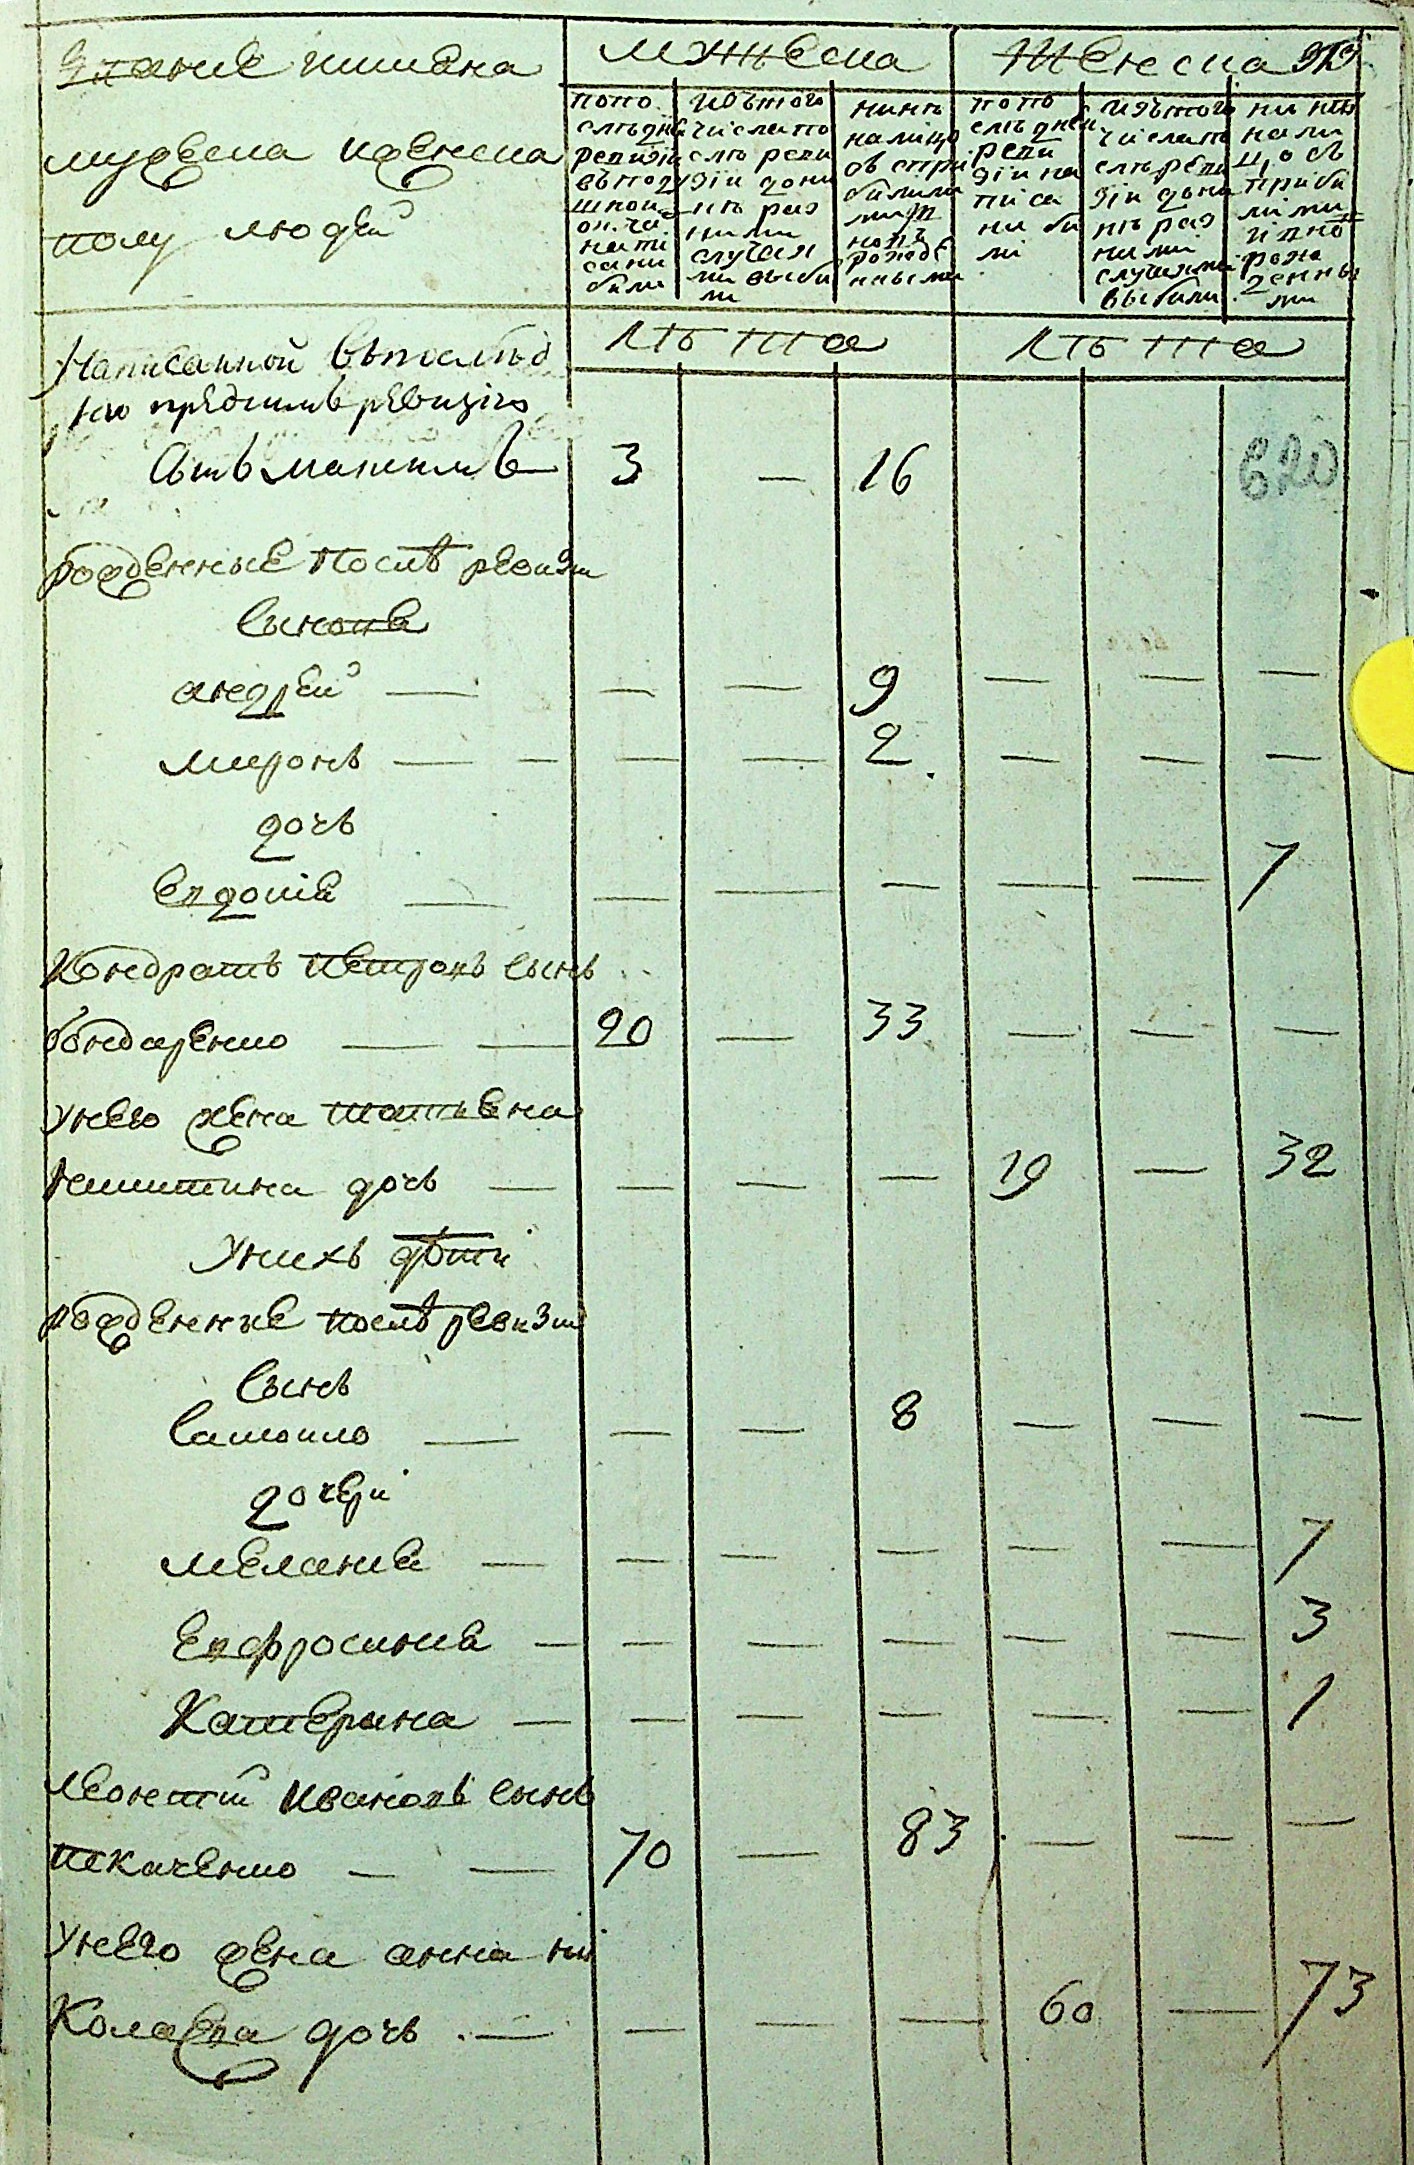 Звание имиена
мужеска иженска
полу людей
мужеска
Женска
попо
следней
ревизіи
въподу
шной
он. ча
напи
сани
были
Изътого
числапо
слѣ реви
зіи дони
нѣ раз
ними
случая
ми выби
ли
нинѣ
налицо
съ при
былими
новъ
рожде
нными
попо
следней
реви
зіи на
писа
ни би
ли
Изътого
числапо
слѣ реви
зіи дони
нѣ раз
ними
случаями
выбили
ни нѣ
нали
цо съ
приби
лими
ивно
рож
денны
ми
лѣта
лѣта
Написанной въпослѣд
нюю предъимъ ревизію
сынъ Максимъ 3 — 16
620
рожденные после ревизіи
сынова
андрей — — — 9 — — —
миронъ — — — — 2 — — —
дочь
Евдокіа — — — — — — 7
Кондратъ Петровъ сынъ
бондаренко — — 20 — 33 — — —
Унего жена татьяна
Никитина дочь — — — — 19 — 32
Унихъ дѣти
рожденные послѣ ревизіи
сынъ
самойло — — — 8 — — —
дочери
мелания — — — — — — 7
Евфросиния — — — — — — 3
Катерина — — — — — — 1
Леонтий Ивановъ сынъ
ткаченко — — 70 — 83 — — —
Унего жена анна ни
Колаева дочь — — — — 60 — 73